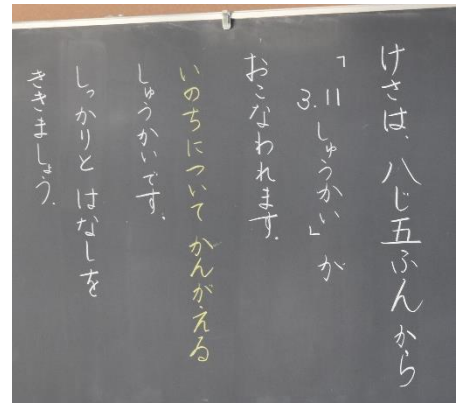 けさは、八じ五ふんから
「3.11しゅうかい」が
おこなわれます。
いのちについて かんがえる
しゅうかいです。
しっかりと はなしを
ききましょう。